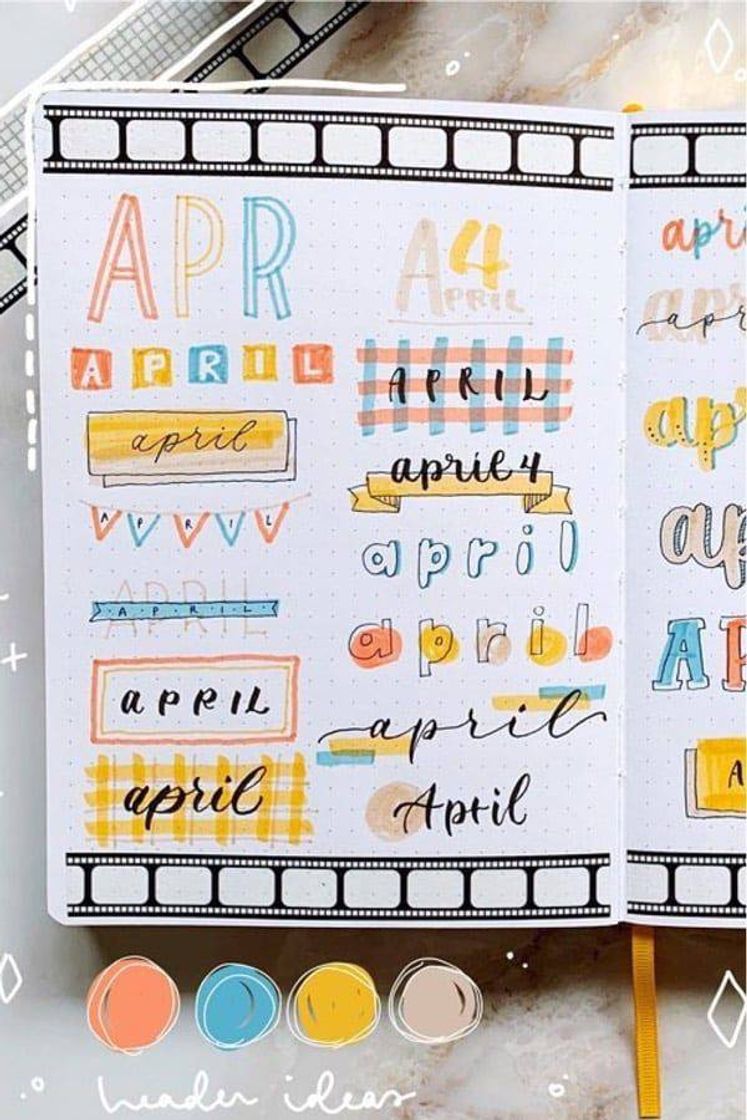 APR
APRIL
april
APRIL
APRIL
A·P·R·I·L
APRIL
april
A4
PRIL
APRIL
april 4
april
april
april
April
apri
apr
apr
ap
ap
AP
A
header ideas